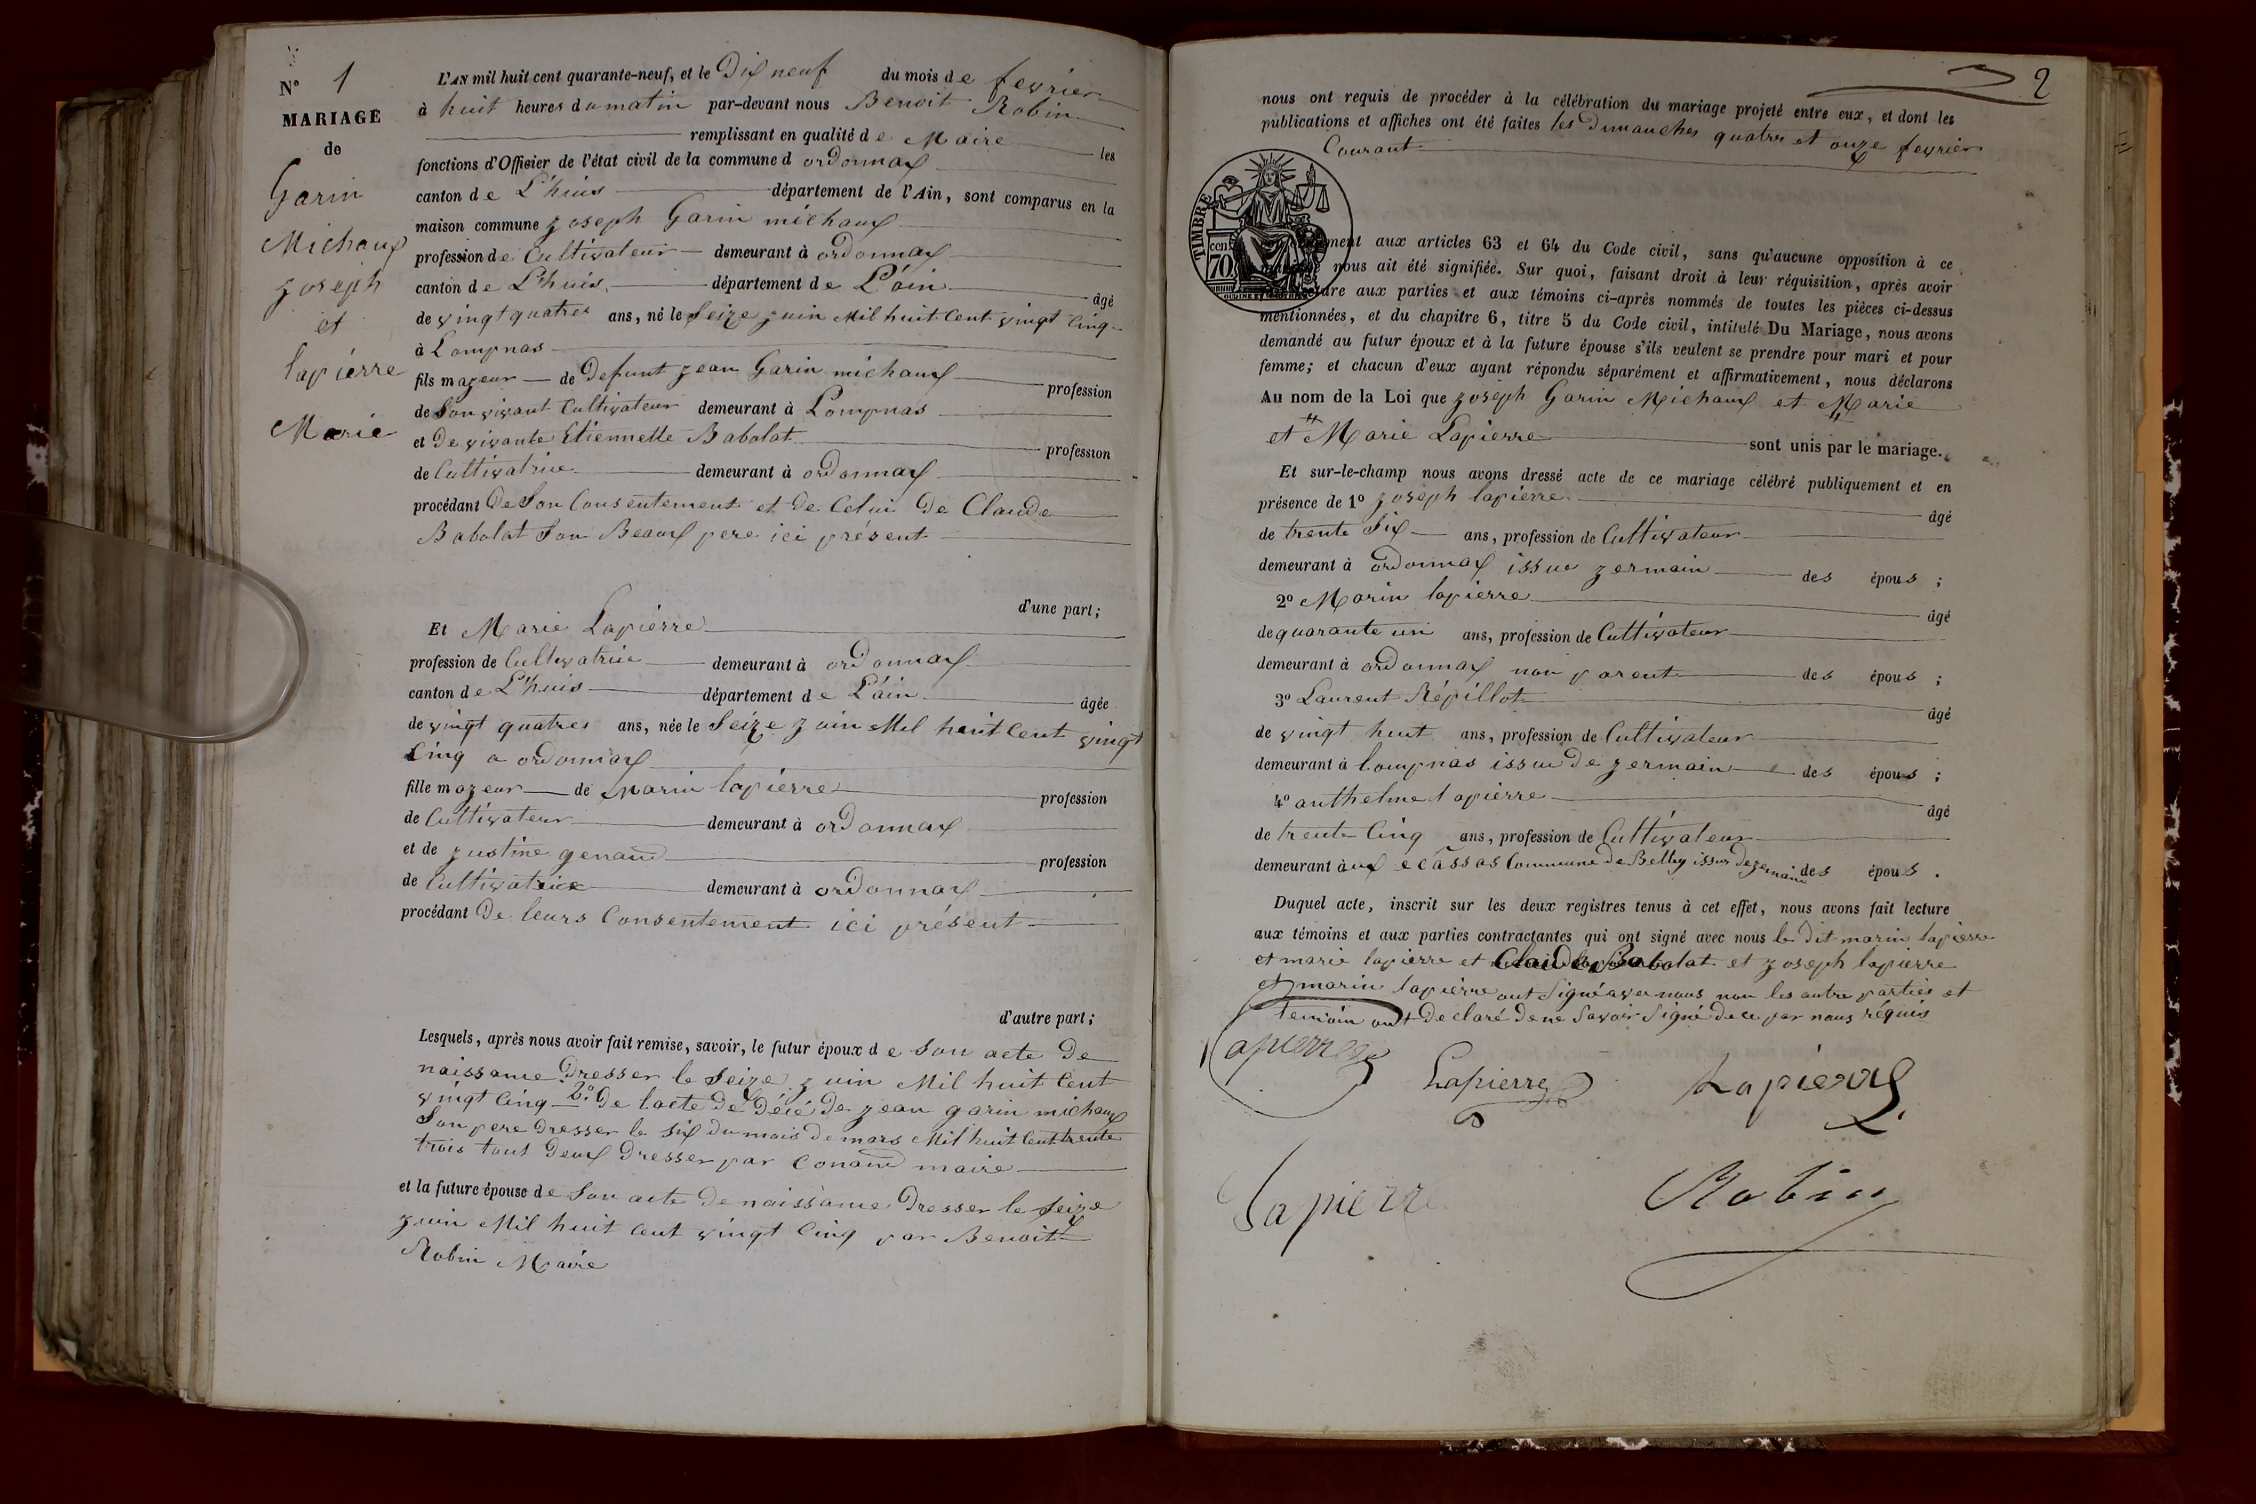 N° 1
MARIAGE
de
Garin
Michaux
Joseph
et
lapierre
Marie
L'AN mil huit cent quarante-neuf, et le Dix neuf du mois de fevrier
à huit heures du matin par-devant nous Benoit Robin
remplissant en qualité de Maire les
fonctions d'Officier de l'état civil de la commune d ordonnax
canton de L'huis département de l'Ain, sont comparus en la
maison commune Joseph Garin michaux
profession de Cultivateur demeurant à ordonnax
canton de L'huis département de L'ain âgé
de vingt quatres ans, né le Seize juin Mil huit Cent vingt Cinq
à Lompnas
fils majeur de Defunt jean Garin michaux profession
de Son vivant Cultivateur demeurant à Lompnas
et De vivante Etiennette Babolat profession
de Cultivatrice demeurant à ordonnax
procédant De Son Consentement et de Celui De Claude
Babolat Son Beaux pere ici présent
d'une part;
Et Marie Lapierre
profession de Cultivatrice demeurant à ordonnax
canton de L'huis département de L'ain âgée
de vingt quatres ans, née le Seize juin Mil huit Cent vingt
Cinq a ordonnax
fille majeur de Marin lapierre profession
de Cultivateur demeurant à ordonnax
et de justine genand profession
de Cultivatrice demeurant à ordonnax
procédant De leurs Consentement ici présent
d'autre part;
Lesquels, après nous avoir fait remise, savoir, le futur époux de Son acte De
naissance Dresser le Seize juin Mil huit Cent
vingt Cinq 2° De lacte De Décé De jean garin michaux
Son pere Dresser le Six du mois de mars Mil huit Cent trente
trois tout Deux Dresser par Conand maire
et la future épouse de Son acte De naissance Dresser le Seize
juin Mil huit Cent vingt Cinq par Benoit
Robin Maire
2
nous ont requis de procéder à la célébration du mariage projeté entre eux, et dont les
publications et affiches ont été faites les Dimanches quatre et onze fevrier
Courant
TIMBRE
70 cen
aux articles 63 et 64 du Code civil, sans qu'aucune opposition à ce
nous ait été signifiée. Sur quoi, faisant droit à leur réquisition, après avoir
aux parties et aux témoins ci-après nommés de toutes les pièces ci-dessus
mentionnées, et du chapitre 6, titre 5 du Code civil, intitulé Du Mariage, nous avons
demandé au futur époux et à la future épouse s'ils veulent se prendre pour mari et pour
femme; et chacun d'eux ayant répondu séparément et affirmativement, nous déclarons
Au nom de la Loi que Joseph Garin Michaux et Marie
et Marie Lapierre sont unis par le mariage.
Et sur-le-champ nous avons dressé acte de ce mariage célébré publiquement et en
présence de 1° Joseph lapierre âgé
de trente Six ans, profession de Cultivateur
demeurant à ordonnax issue germain des épous ;
2° Marin lapierre âgé
de quarante un ans, profession de Cultivateur
demeurant à ordonnax non parent des épous ;
3° Laurent Répillot âgé
de vingt huit ans, profession de Cultivateur
demeurant à lompnas issue De germain des épous ;
4° anthelme lapierre âgé
de trente Cinq ans, profession de Cultivateur
demeurant à aux ecassas Commune De Belley issus De germain des épous .
Duquel acte, inscrit sur les deux registres tenus à cet effet, nous avons fait lecture
aux témoins et aux parties contractantes qui ont signé avec nous le Dit marin lapierre
et marie lapierre et Claude Babolat et Joseph lapierre
et marin lapierre ont Signé avec nous non les autre parties et
temoin ont Declaré De ne Savoir Signé De ce par nous réquis
Lapierre
Lapierre
Lapierre
Lapierre
Robin